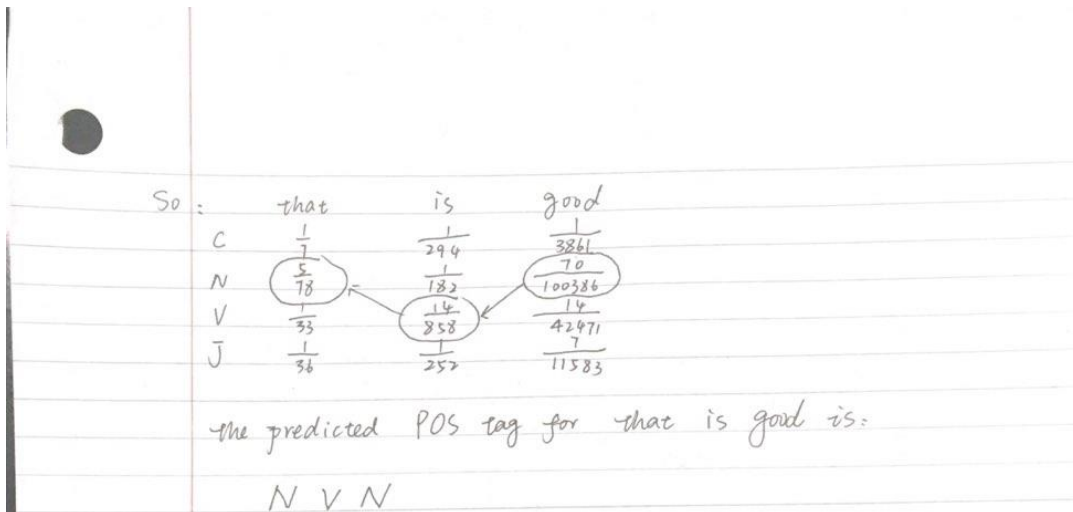 So: that is good
C 1/7 1/294 1/3861
N 5/78 1/182 70/100386
V 1/33 14/858 14/42471
J 1/36 1/252 7/11583
the predicted POS tag for that is good is:
N V N